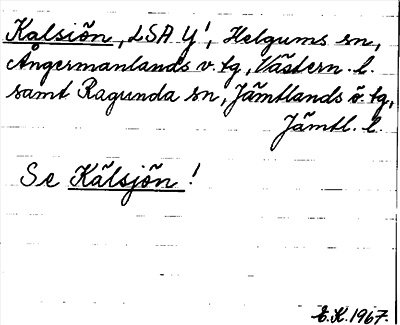 Kalsiön, LSA Y!, Helgums sn,
Ångermanlands v. tg, Västern. l.
samt Ragunda sn, Jämtlands ö. tg,
Jämtl. l.
Se Kälsjön!
E.K. 1967.